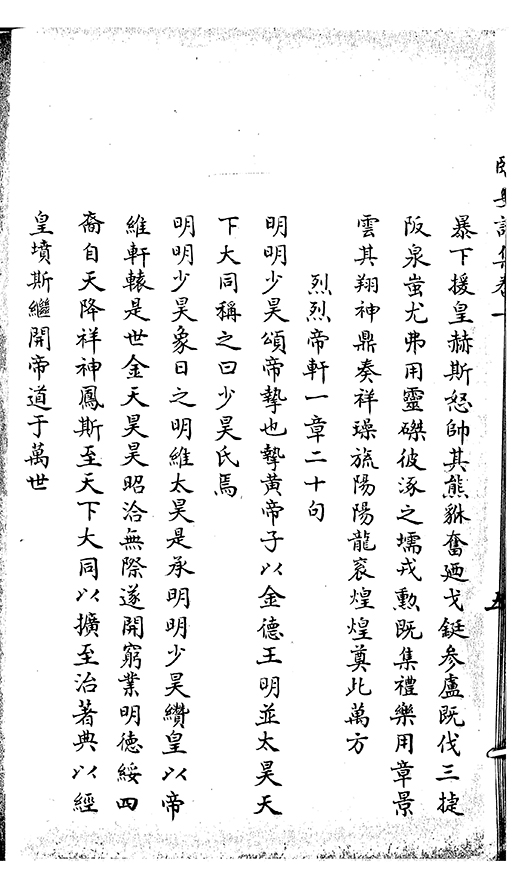 暴下援皇赫斯怒帥其熊貅奮廼戈鋋參盧既伐三捷
阪泉蚩尤弗用靈磔彼涿之壖戎勲既集禮樂用章景
雲其翔神鼎奏祥璪旒陽陽龍袞煌煌奠此萬方
烈烈帝軒一章二十句
明明少昊頌帝摯也摯黄帝子以金德王明並太昊天
下大同稱之曰少昊氏焉
明明少昊象日之明維太昊是承明明少昊纘皇以帝
維軒轅是世金天昊昊昭洽無際遂開窮業明德綏四
裔自天降祥神鳳斯至天下大同以擴至治著典以經
皇墳斯繼開帝道于萬世